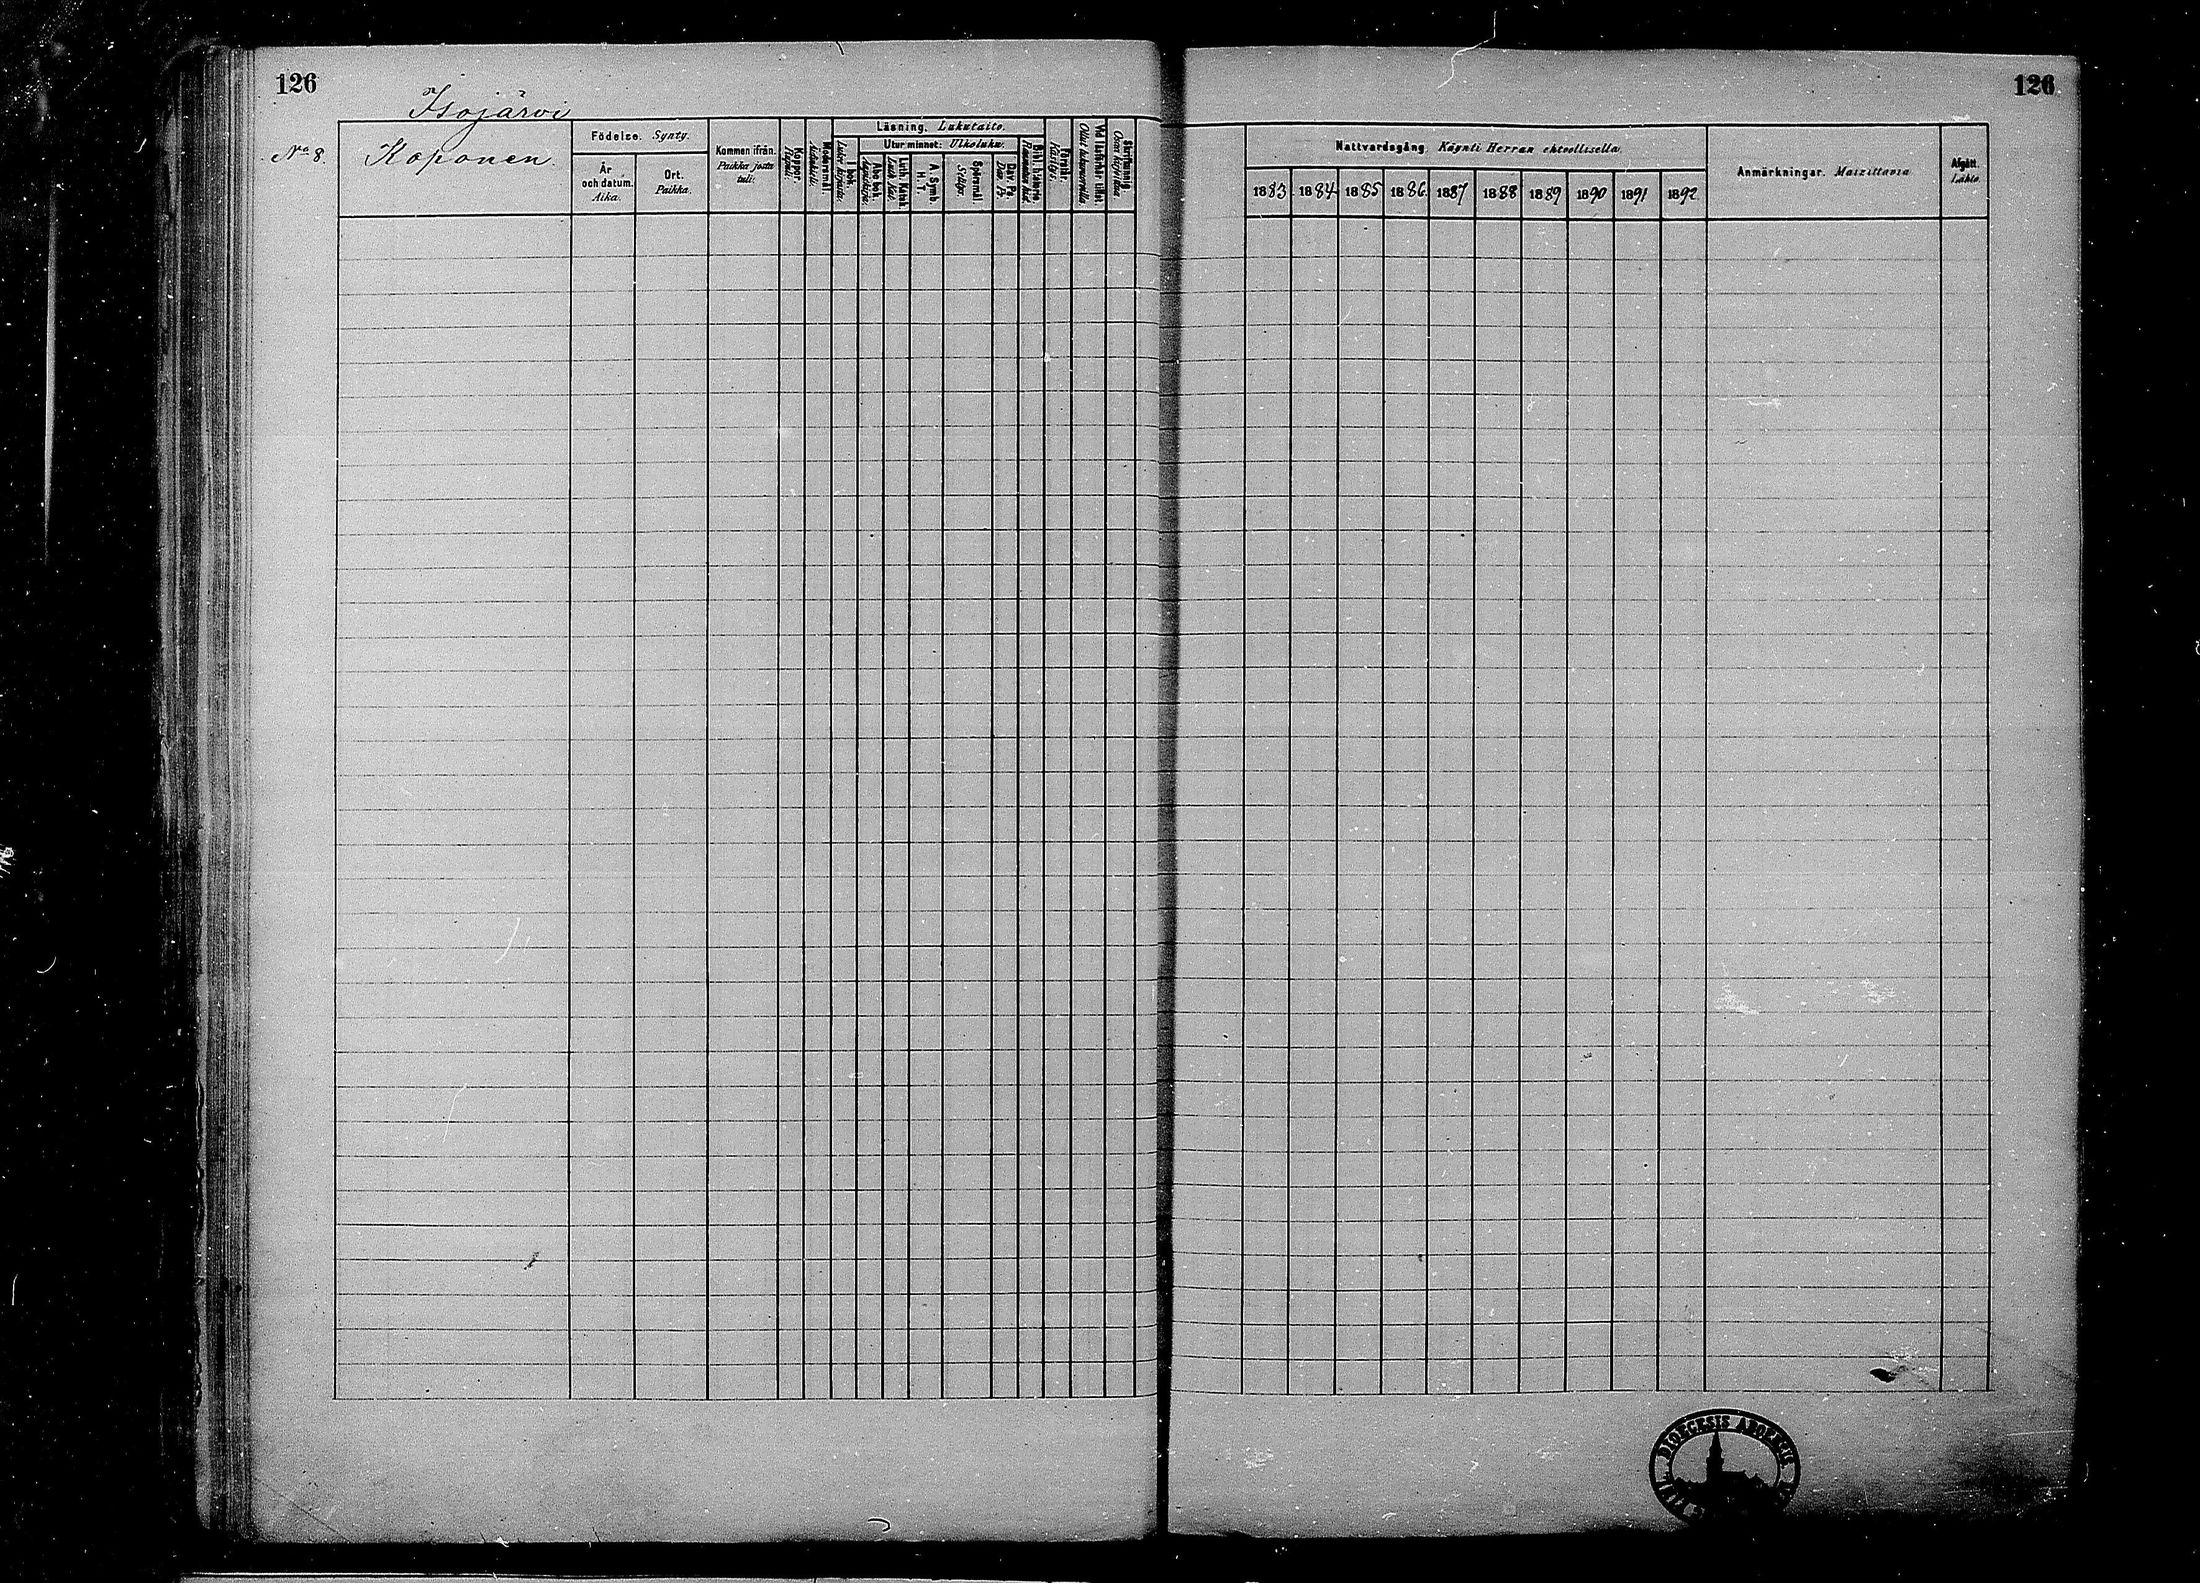 126
126
Isojärvi
No 8.
Koponen.
Födelse. Synty.
År och datum. Aika.
Ort. Paikka.
Kommen ifrån. Paikka josta tuli:
Koppor. Rupuli:
Läsning. Lukutaito.
Utur minnet: Ulkoluku.
Abc bok.
Luth. Katek. Luth. Kat.
A. Symb. H. T.
Spörsmål.
Dav. Ps. Dav. Ps.
Förstår. Käsitys.
Nattvardsgång. Käynti Herran ehtoollisella.
1883. 1884 1885 1886. 1887 1888 1889 1890 1891 1892
Anmärkningar. Muistuttavia
Afgått. Lähtö.
DIOECESIS ABOENSIS